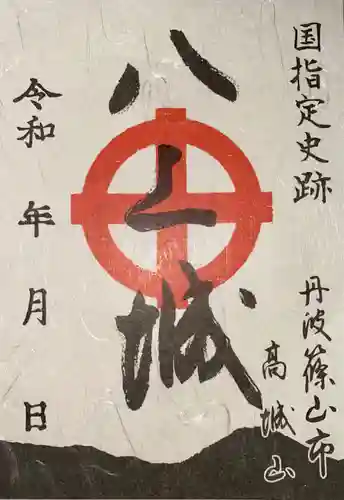 国指定史跡
丹波篠山市
高城山
八上城
令和 年 月 日